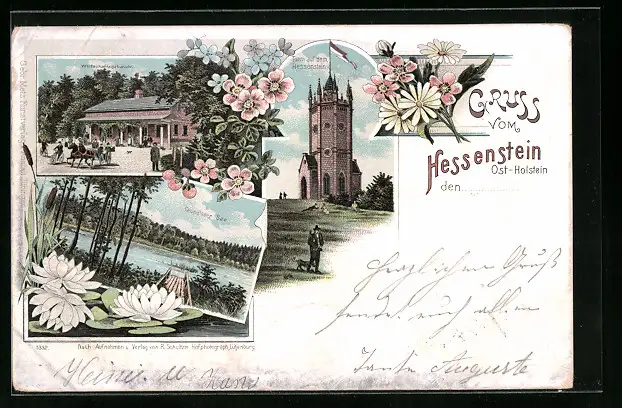 Wirtschaftsgebäude
Turm auf dem
Hessenstein
GRUSS
VOM
HESSENSTEIN
Ost-Holstein
den
See
Herzlichen Gruß
sendet euch allen
Tante Auguste
1332 Nach Aufnahmen u. Verlag von R. Schulten Hofphotograph, Lütjenburg.
Heini. u.